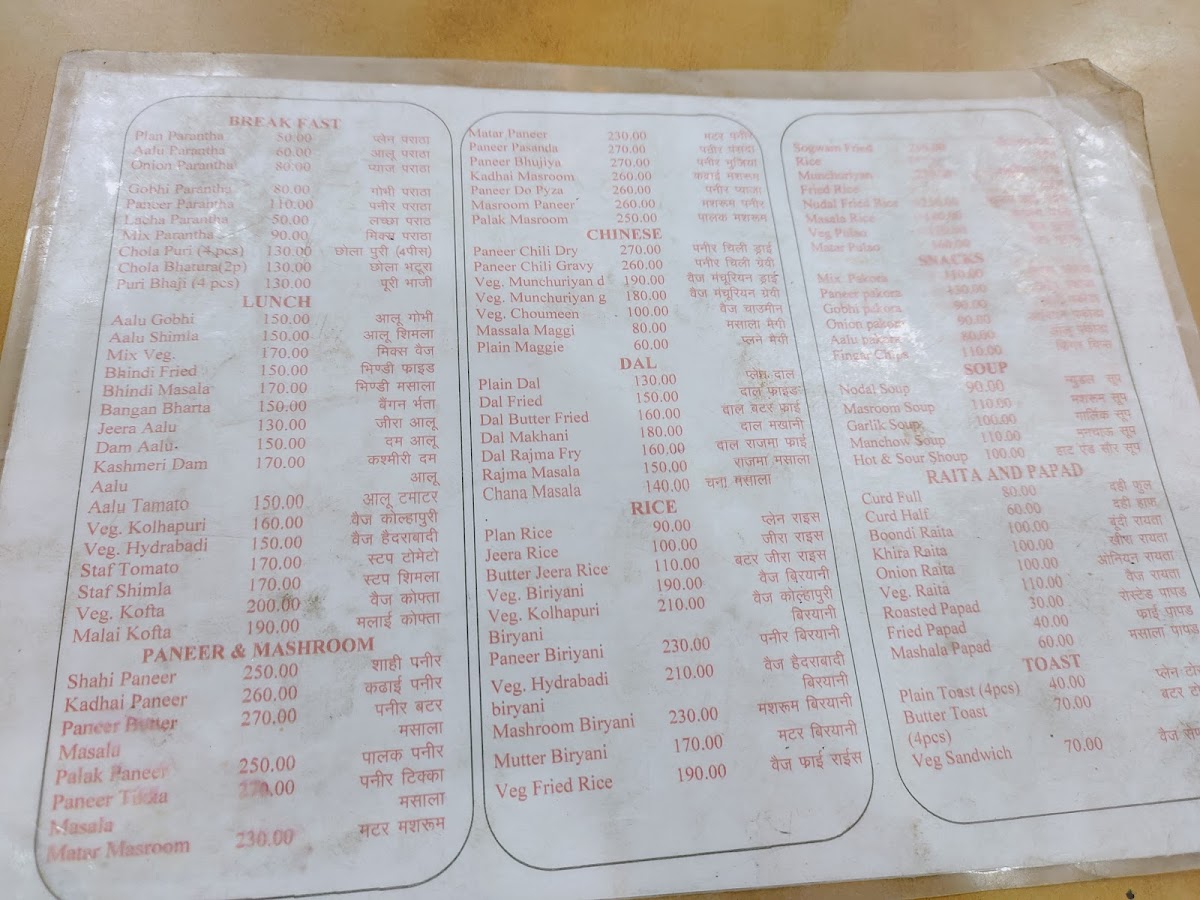 BREAK FAST
Plan Parantha 50.00 प्लेन पराठा
Aalu Parantha 60.00 आलू पराठा
Onion Parantha 80.00 प्याज पराठा
Gobhi Parantha 80.00 गोभी पराठा
Paneer Parantha 110.00 पनीर पराठा
Lacha Parantha 50.00 लच्छा पराठ
Mix Parantha 90.00 मिक्ष्‍ पराठा
Chola Puri (4 pcs) 130.00 छोला पुरी (4पीस)
Chola Bhatura(2p) 130.00 छोला भटूरा
Puri Bhaji (4 pcs) 130.00 पूरी भाजी
LUNCH
Aalu Gobhi 150.00 आलू गोभी
Aalu Shimla 150.00 आलू शिमला
Mix Veg. 170.00 मिक्स वैज
Bhindi Fried 150.00 भिण्डी फाइड
Bhindi Masala 170.00 भिण्डी मसाला
Bangan Bharta 150.00 बैंगन र्भता
Jeera Aalu 130.00 जीरा आलू
Dam Aalu. 150.00 दम आलू
Kashmeri Dam 170.00 कश्मीरी दम
Aalu आलू
Aalu Tamato 150.00 आलू टमाटर
Veg. Kolhapuri 160.00 वैज कोल्हापुरी
Veg. Hydrabadi 150.00 वैज हैदराबादी
Staf Tomato 170.00 स्टप टोमेटो
Staf Shimla 170.00 स्टप शिमला
Veg. Kofta 200.00 वैज कोफ्ता
Malai Kofta 190.00 मलाई कोफ्ता
PANEER & MASHROOM
Shahi Paneer 250.00 शाही पनीर
Kadhai Paneer 260.00 कढाई पनीर
Paneer Butter 270.00 पनीर बटर
Masala मसाला
Palak Paneer 250.00 पालक पनीर
Paneer Tikka 270.00 पनीर टिक्का
Masala मसाला
Matar Masroom 230.00 मटर मशरूम
Matar Paneer 230.00 मटर पनीर
Paneer Pasanda 270.00 पनीर पसंदा
Paneer Bhujiya 270.00 पनीर भुजिया
Kadhai Masroom 260.00 कढाई मशरूम
Paneer Do Pyza 260.00 पनीर प्याजा
Masroom Paneer 260.00 मशरूम पनीर
Palak Masroom 250.00 पालक मशरूम
CHINESE
Paneer Chili Dry 270.00 पनीर चिली ड्राई
Paneer Chili Gravy 260.00 पनीर चिली ग्रेवी
Veg. Munchuriyan d 190.00 वैज मंचूरियन ड्राई
Veg. Munchuriyan g 180.00 वैज मंचूरियन ग्रेवी
Veg. Choumeen 100.00 वैज चाउमीन
Massala Maggi 80.00 मसाला मैगी
Plain Maggie 60.00 प्लन मैगी
DAL
Plain Dal 130.00 प्लेन दाल
Dal Fried 150.00 दाल फाइड
Dal Butter Fried 160.00 दाल बटर फाई
Dal Makhani 180.00 दाल मखानी
Dal Rajma Fry 160.00 दाल राजमा फाई
Rajma Masala 150.00 राजमा मसाला
Chana Masala 140.00 चना मसाला
RICE
Plan Rice 90.00 प्लेन राइस
Jeera Rice 100.00 जीरा राइस
Butter Jeera Rice 110.00 बटर जीरा राइस
Veg. Biriyani 190.00 वैज बिरयानी
Veg. Kolhapuri 210.00 वैज कोल्हापुरी
Biryani बिरयानी
Paneer Biriyani 230.00 पनीर बिरयानी
Veg. Hydrabadi 210.00 वैज हैदराबादी
biryani बिरयानी
Mashroom Biryani 230.00 मशरूम बिरयानी
Mutter Biryani 170.00 मटर बिरयानी
Veg Fried Rice 190.00 वैज फाई राईस
Sogwam Fried
Rice
Munchuriyan
Fried Rice
Nudal Fried Rice
Masala Rice
Veg Pulao
Matar Pulao 160.00
SNACKS
Mix Pakora 110.00
Paneer pakora 130.00
Gobhi pakora 90.00
Onion pakora 90.00
Aalu pakora 80.00
Fingar Chips 110.00
SOUP
Nodal Soup 90.00 न्युडल सूप
Masroom Soup 110.00 मशरूम सूप
Garlik Soup 100.00 गार्लिक सूप
Manchow Soup 110.00 मनचाऊ सूप
Hot & Sour Shoup 100.00 हाट एंड सौर सूप
RAITA AND PAPAD
Curd Full 80.00 दही फुल
Curd Half 60.00 दही हाफ
Boondi Raita 100.00 बूंदी रायता
Khira Raita 100.00 खीरा रायता
Onion Raita 100.00 ओनियन रायता
Veg. Raita 110.00 वैज रायता
Roasted Papad 30.00 रोस्टेड पापड
Fried Papad 40.00 फाई पापड
Mashala Papad 60.00 मसाला पापड
TOAST
Plain Toast (4pcs) 40.00 प्लेन
Butter Toast 70.00 बटर
(4pcs)
Veg Sandwich 70.00 वैज